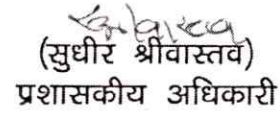 (सुधीर श्रीवास्तव)
प्रशासकीय अधिकारी